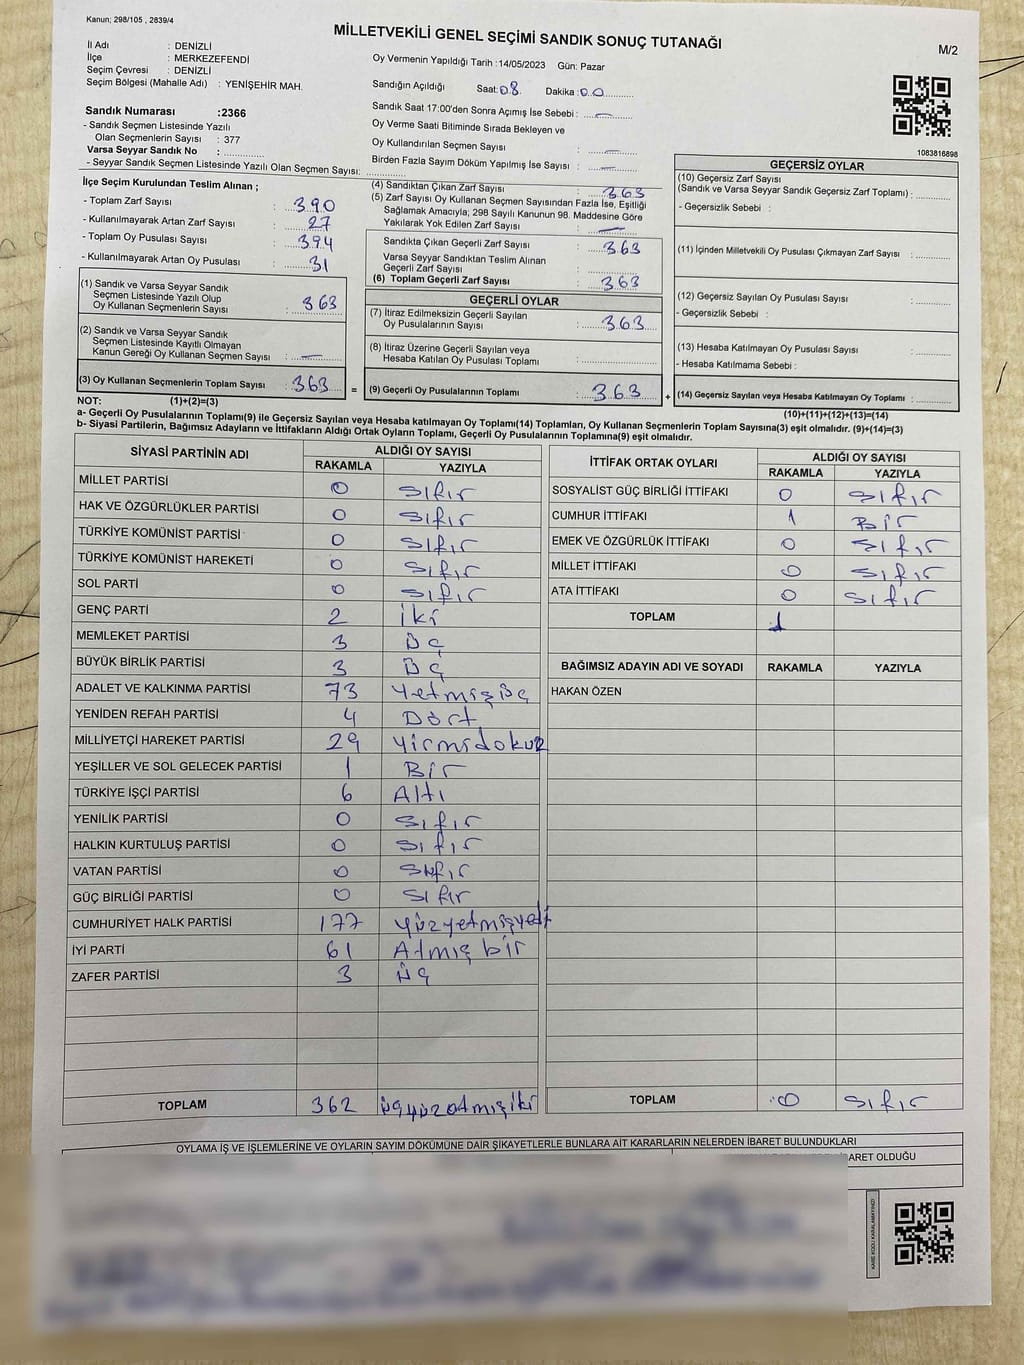 Kanun; 298/105 , 2839/4
MİLLETVEKİLİ GENEL SEÇİMİ SANDIK SONUÇ TUTANAĞI
M/2
İl Adı : DENİZLİ
İlçe : MERKEZEFENDİ
Seçim Çevresi : DENİZLİ
Seçim Bölgesi (Mahalle Adı) : YENİŞEHİR MAH.
Oy Vermenin Yapıldığı Tarih :14/05/2023 Gün: Pazar
Sandığın Açıldığı Saat:08 Dakika:00
Sandık Saat 17:00'den Sonra Açımış İse Sebebi : —
Oy Verme Saati Bitiminde Sırada Bekleyen ve
Oy Kullandırılan Seçmen Sayısı : —
Birden Fazla Sayım Döküm Yapılmış İse Sayısı : —
Sandık Numarası :2366
- Sandık Seçmen Listesinde Yazılı
Olan Seçmenlerin Sayısı : 377
Varsa Seyyar Sandık No :
- Seyyar Sandık Seçmen Listesinde Yazılı Olan Seçmen Sayısı:
1083816898
İlçe Seçim Kurulundan Teslim Alınan ;
- Toplam Zarf Sayısı : 390
- Kullanılmayarak Artan Zarf Sayısı : 27
- Toplam Oy Pusulası Sayısı : 394
- Kullanılmayarak Artan Oy Pusulası : 31
(1) Sandık ve Varsa Seyyar Sandık
Seçmen Listesinde Yazılı Olup
Oy Kullanan Seçmenlerin Sayısı : 363
(2) Sandık ve Varsa Seyyar Sandık
Seçmen Listesinde Kayıtlı Olmayan
Kanun Gereği Oy Kullanan Seçmen Sayısı : —
(3) Oy Kullanan Seçmenlerin Toplam Sayısı : 363
(4) Sandıktan Çıkan Zarf Sayısı : 363
(5) Zarf Sayısı Oy Kullanan Seçmen Sayısından Fazla İse, Eşitliği
Sağlamak Amacıyla; 298 Sayılı Kanunun 98. Maddesine Göre
Yakılarak Yok Edilen Zarf Sayısı : —
Sandıkta Çıkan Geçerli Zarf Sayısı : 363
Varsa Seyyar Sandıktan Teslim Alınan
Geçerli Zarf Sayısı :
(6) Toplam Geçerli Zarf Sayısı : 363
GEÇERLİ OYLAR
(7) İtiraz Edilmeksizin Geçerli Sayılan
Oy Pusulalarının Sayısı : 363
(8) İtiraz Üzerine Geçerli Sayılan veya
Hesaba Katılan Oy Pusulası Toplamı :
= (9) Geçerli Oy Pusulalarının Toplamı : 363
GEÇERSİZ OYLAR
(10) Geçersiz Zarf Sayısı
(Sandık ve Varsa Seyyar Sandık Geçersiz Zarf Toplamı) :
- Geçersizlik Sebebi :
(11) İçinden Milletvekili Oy Pusulası Çıkmayan Zarf Sayısı :
(12) Geçersiz Sayılan Oy Pusulası Sayısı :
- Geçersizlik Sebebi :
(13) Hesaba Katılmayan Oy Pusulası Sayısı :
- Hesaba Katılmama Sebebi :
+ (14) Geçersiz Sayılan veya Hesaba Katılmayan Oy Toplamı :
NOT: (1)+(2)=(3)
(10)+(11)+(12)+(13)=(14)
a- Geçerli Oy Pusulalarının Toplamı(9) ile Geçersiz Sayılan veya Hesaba katılmayan Oy Toplamı(14) Toplamları, Oy Kullanan Seçmenlerin Toplam Sayısına(3) eşit olmalıdır. (9)+(14)=(3)
b- Siyasi Partilerin, Bağımsız Adayların ve İttifakların Aldığı Ortak Oyların Toplamı, Geçerli Oy Pusulalarının Toplamına(9) eşit olmalıdır.
SİYASİ PARTİNİN ADI ALDIĞI OY SAYISI
RAKAMLA YAZIYLA
MİLLET PARTİSİ 0 sıfır
HAK VE ÖZGÜRLÜKLER PARTİSİ 0 sıfır
TÜRKİYE KOMÜNİST PARTİSİ 0 sıfır
TÜRKİYE KOMÜNİST HAREKETİ 0 sıfır
SOL PARTİ 0 sıfır
GENÇ PARTİ 2 iki
MEMLEKET PARTİSİ 3 üç
BÜYÜK BİRLİK PARTİSİ 3 üç
ADALET VE KALKINMA PARTİSİ 73 Yetmişüç
YENİDEN REFAH PARTİSİ 4 Dört
MİLLİYETÇİ HAREKET PARTİSİ 29 Yirmidokuz
YEŞİLLER VE SOL GELECEK PARTİSİ 1 Bir
TÜRKİYE İŞÇİ PARTİSİ 6 Altı
YENİLİK PARTİSİ 0 sıfır
HALKIN KURTULUŞ PARTİSİ 0 sıfır
VATAN PARTİSİ 0 sıfır
GÜÇ BİRLİĞİ PARTİSİ 0 sıfır
CUMHURİYET HALK PARTİSİ 177 Yüzyetmişyedi
İYİ PARTİ 61 Atmış bir
ZAFER PARTİSİ 3 üç
TOPLAM 362 üçyüzatmışiki
İTTİFAK ORTAK OYLARI ALDIĞI OY SAYISI
RAKAMLA YAZIYLA
SOSYALİST GÜÇ BİRLİĞİ İTTİFAKI 0 sıfır
CUMHUR İTTİFAKI 1 Bir
EMEK VE ÖZGÜRLÜK İTTİFAKI 0 sıfır
MİLLET İTTİFAKI 0 sıfır
ATA İTTİFAKI 0 sıfır
TOPLAM 1
BAĞIMSIZ ADAYIN ADI VE SOYADI RAKAMLA YAZIYLA
HAKAN ÖZEN
TOPLAM 0 sıfır
OYLAMA İŞ VE İŞLEMLERİNE VE OYLARIN SAYIM DÖKÜMÜNE DAİR ŞİKAYETLERLE BUNLARA AİT KARARLARIN NELERDEN İBARET BULUNDUKLARI
İBARET OLDUĞU
KARE KODU KARALAMAYINIZ!